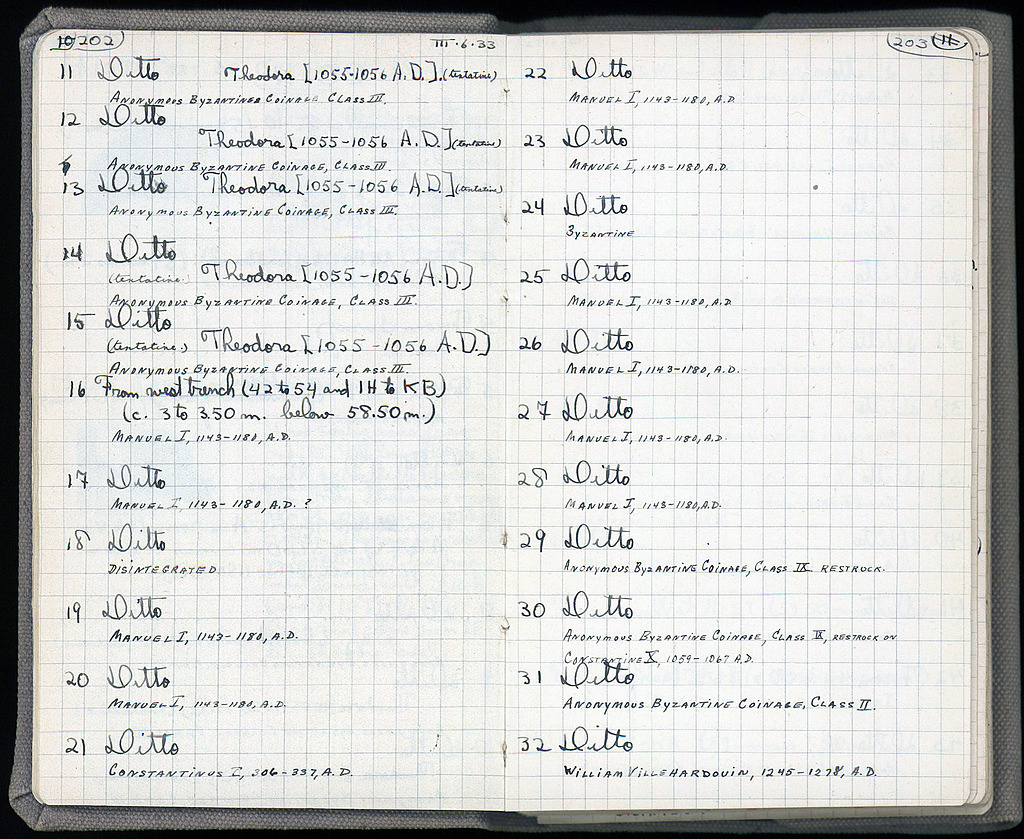 10 202
III.6.33
11 Ditto Theodora [1055-1056 A.D.]. (tentative)
Anonymous Byzantine Coinage Class III.
12 Ditto
Theodora [1055-1056 A.D.] (tentative)
Anonymous Byzantine Coinage, Class III
13 Ditto Theodora [1055-1056 A.D.] (tentative)
Anonymous Byzantine Coinage, Class III.
14 Ditto
(tentative. Theodora [1055-1056 A.D.]
Anonymous Byzantine Coinage, Class III.
15 Ditto
(tentative.) Theodora [1055-1056 A.D.]
Anonymous Byzantine Coinage, Class III.
16 From west trench (42 to 54 and IH to KB)
(c. 3 to 3.50 m. below 58.50 m.)
Manuel I, 1143-1180, A.D.
17 Ditto
Manuel I, 1143-1180, A.D. ?
18 Ditto
Disintegrated
19 Ditto
Manuel I, 1143-1180, A.D.
20 Ditto
Manuel I, 1143-1180, A.D.
21 Ditto
Constantinus I, 306-337, A.D.
203 11
22 Ditto
Manuel I, 1143-1180, A.D.
23 Ditto
Manuel I, 1143-1180, A.D.
24 Ditto
Byzantine
25 Ditto
Manuel I, 1143-1180, A.D
26 Ditto
Manuel I, 1143-1180, A.D.
27 Ditto
Manuel I, 1143-1180, A.D.
28 Ditto
Manuel I, 1143-1180, A.D.
29 Ditto
Anonymous Byzantine Coinage, Class IX restruck.
30 Ditto
Anonymous Byzantine Coinage, Class IX, restruck on
Constantine X, 1059-1067 A.D.
31 Ditto
Anonymous Byzantine Coinage, Class II.
32 Ditto
William Villehardouin, 1245-1278, A.D.